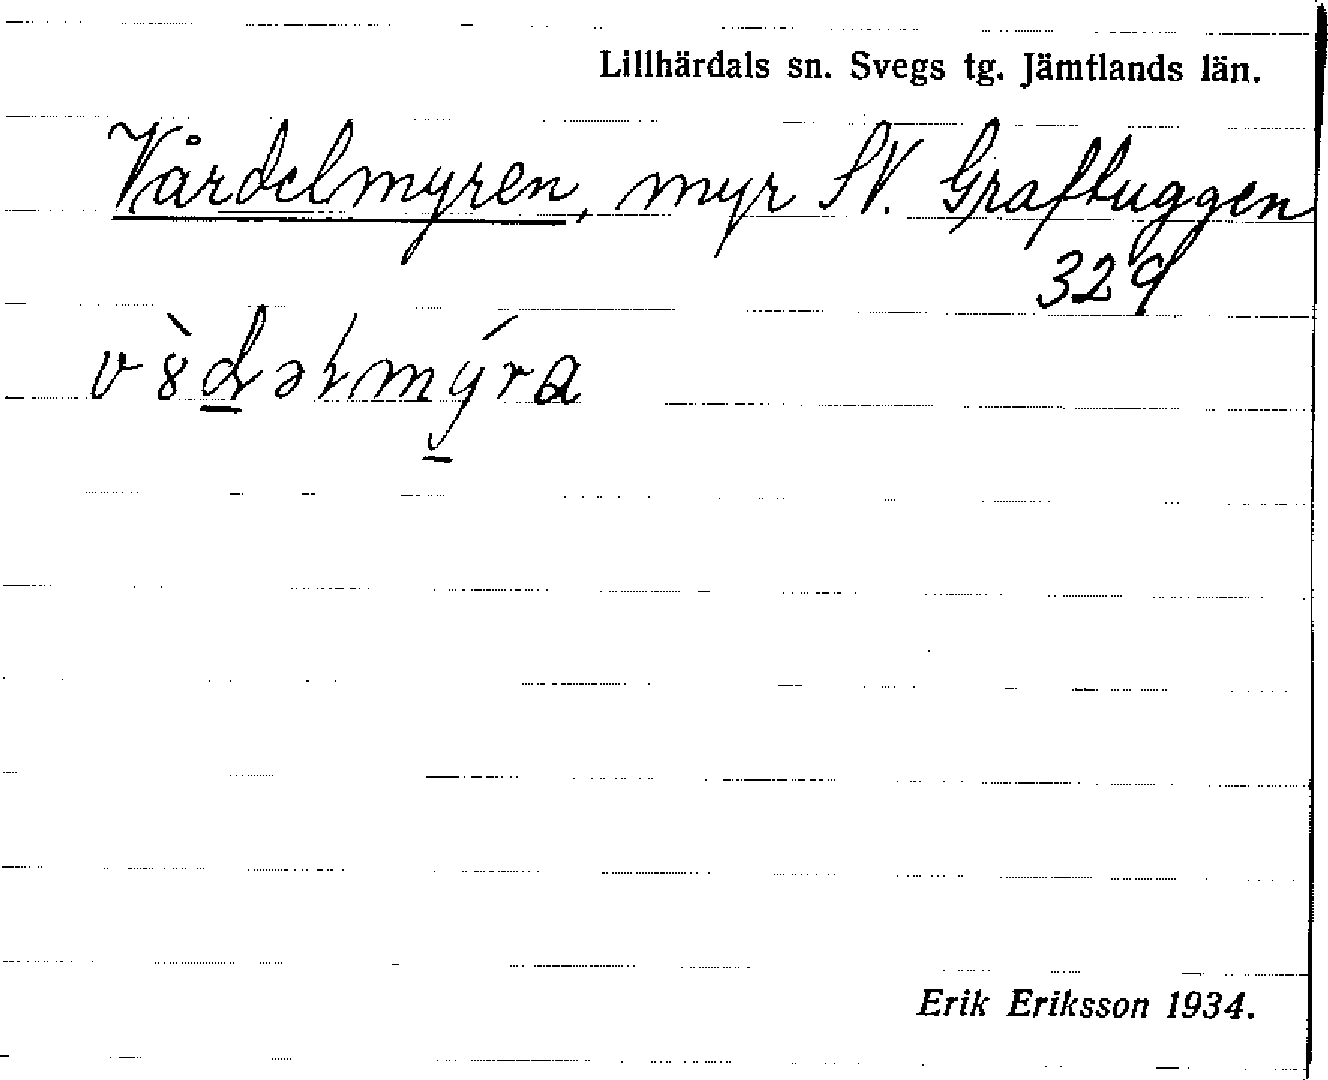 Lillhärdals sn. Svegs tg. Jämtlands län.
Vårdelmyren, myr SV. Graftuggen
329
Erik Eriksson 1934.